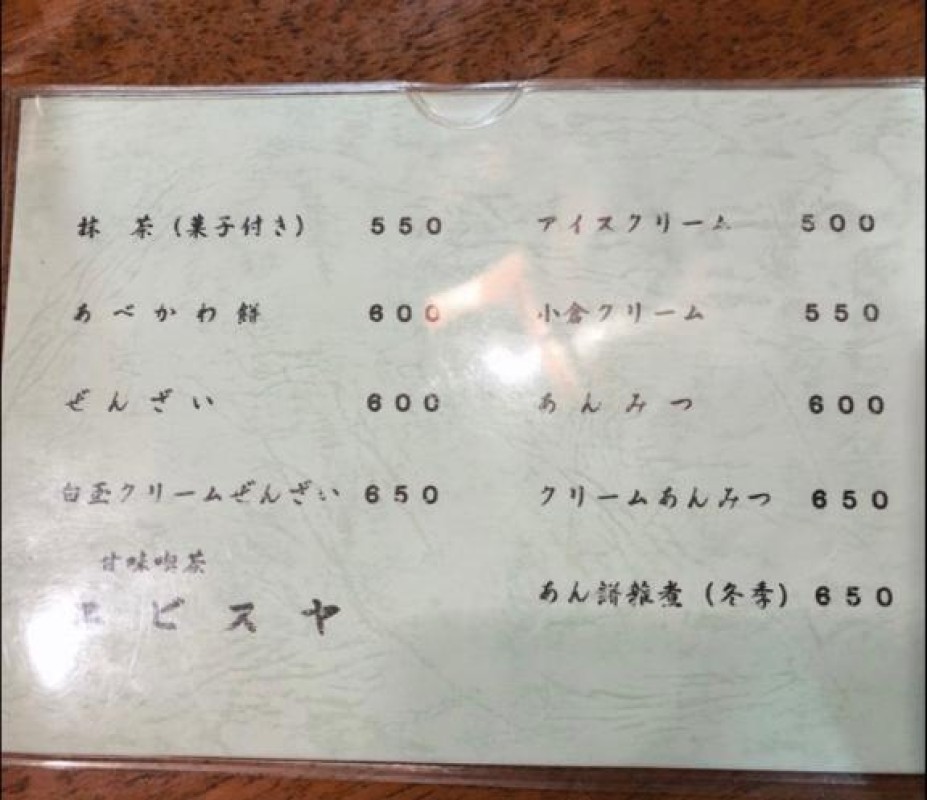 抹 茶（菓子付き） 550
あべかわ餅 600
ぜんざい 600
白玉クリームぜんざい 650
甘味喫茶
エビスヤ
アイスクリーム 500
小倉クリーム 550
あんみつ 600
クリームあんみつ 650
あん餅雑煮（冬季） 650